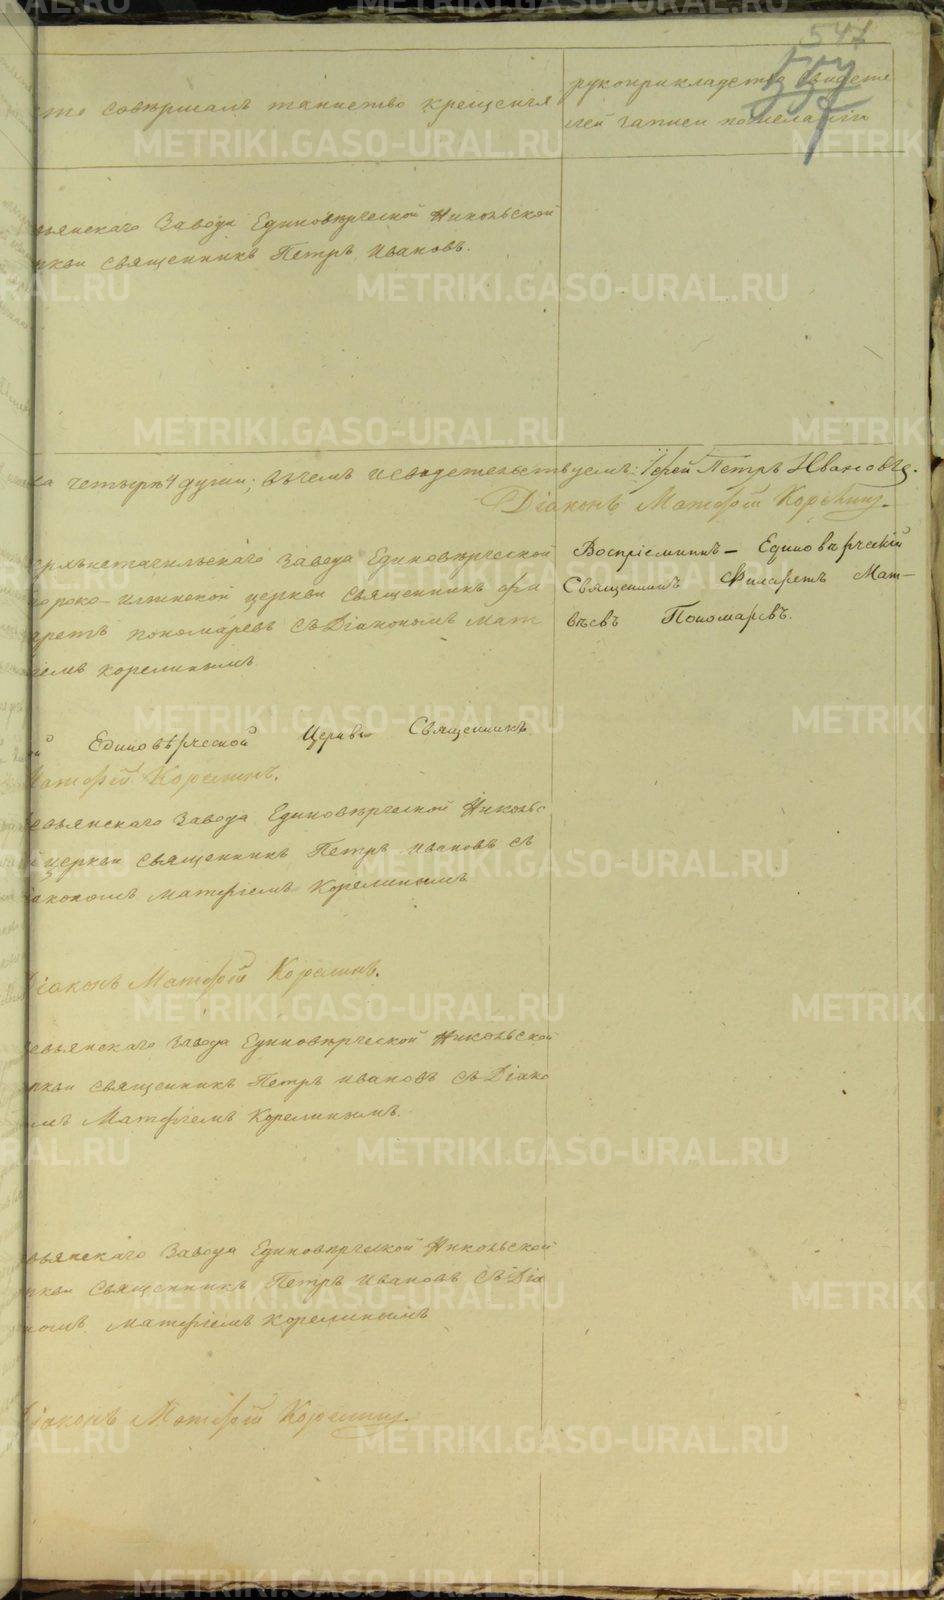 547
557
сто совершалъ таинство крещенія
рукоприкладство свидете
лей записи пожеланію
вьянскаго Завода Единовѣрческой Никольской
ркви священникъ Петръ Ивановъ.
ка четыре 4 души; въ чемъ и сведетельствуемъ: Іерей Петръ Ивановъ.
Діаконъ Матѳей Корелинъ.
ерхнетагильскаго Завода Единовѣрческой
пророко-Ильинской церкви священникъ Фи
ларетъ Пономаревъ съ Діакономъ Мат
ѳіемъ Корелинымъ
Воспріемникъ – Единовѣрческій
Священникъ Филаретъ Мат-
вѣевъ Пономаревъ.
ой Единовѣрческой Церкви Священникъ
Матѳей Корелинъ.
евьянскаго Завода Единовѣрческой Никольс
й церкви священникъ Петръ Ивановъ съ
іакономъ Матѳіемъ Корелинымъ
Діаконъ Матѳей Корелинъ.
евьянскаго Завода Единовѣрческой Никольской
ркви священникъ Петръ Ивановъ съ Діако
мъ Матѳіемъ Корелинымъ.
вьянскаго Завода Единовѣрческой Никольской
ркви Священникъ Петръ Ивановъ съ Діа
номъ Матѳіемъ Корелинымъ
Діаконъ Матѳей Корелинъ.
METRIKI.GASO-URAL.RU